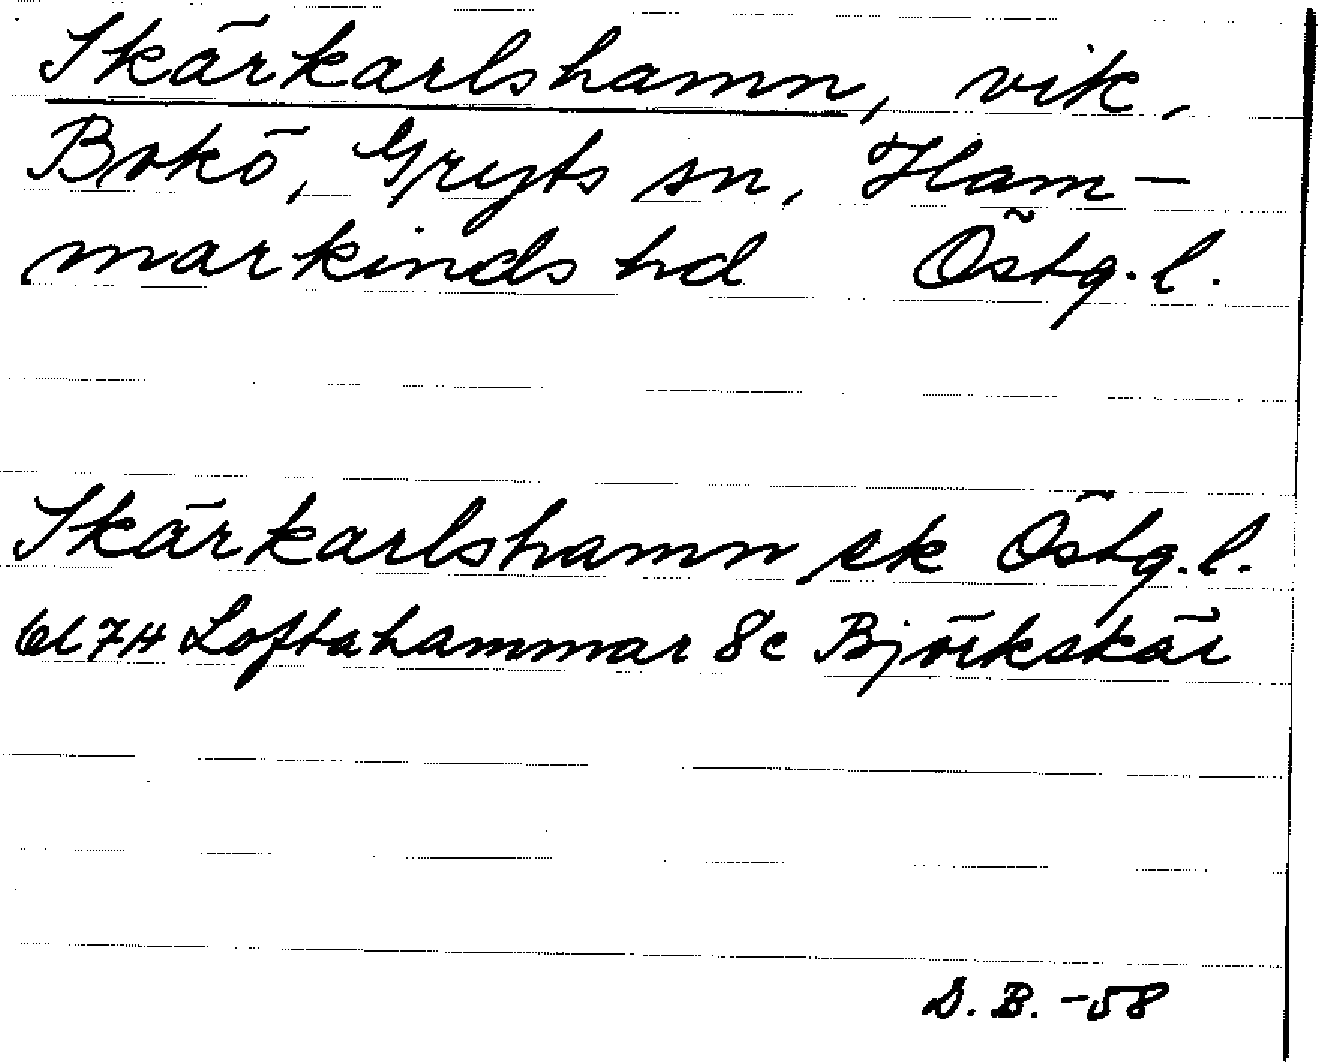 Skärkarlshamn, vik,
Bokö, Gryts sn, Ham-
markinds hd Östg. l.
Skärkarlshamn ek Östg. l.
6l 7H Loftahammar 8c Björkskär
D. B. -58